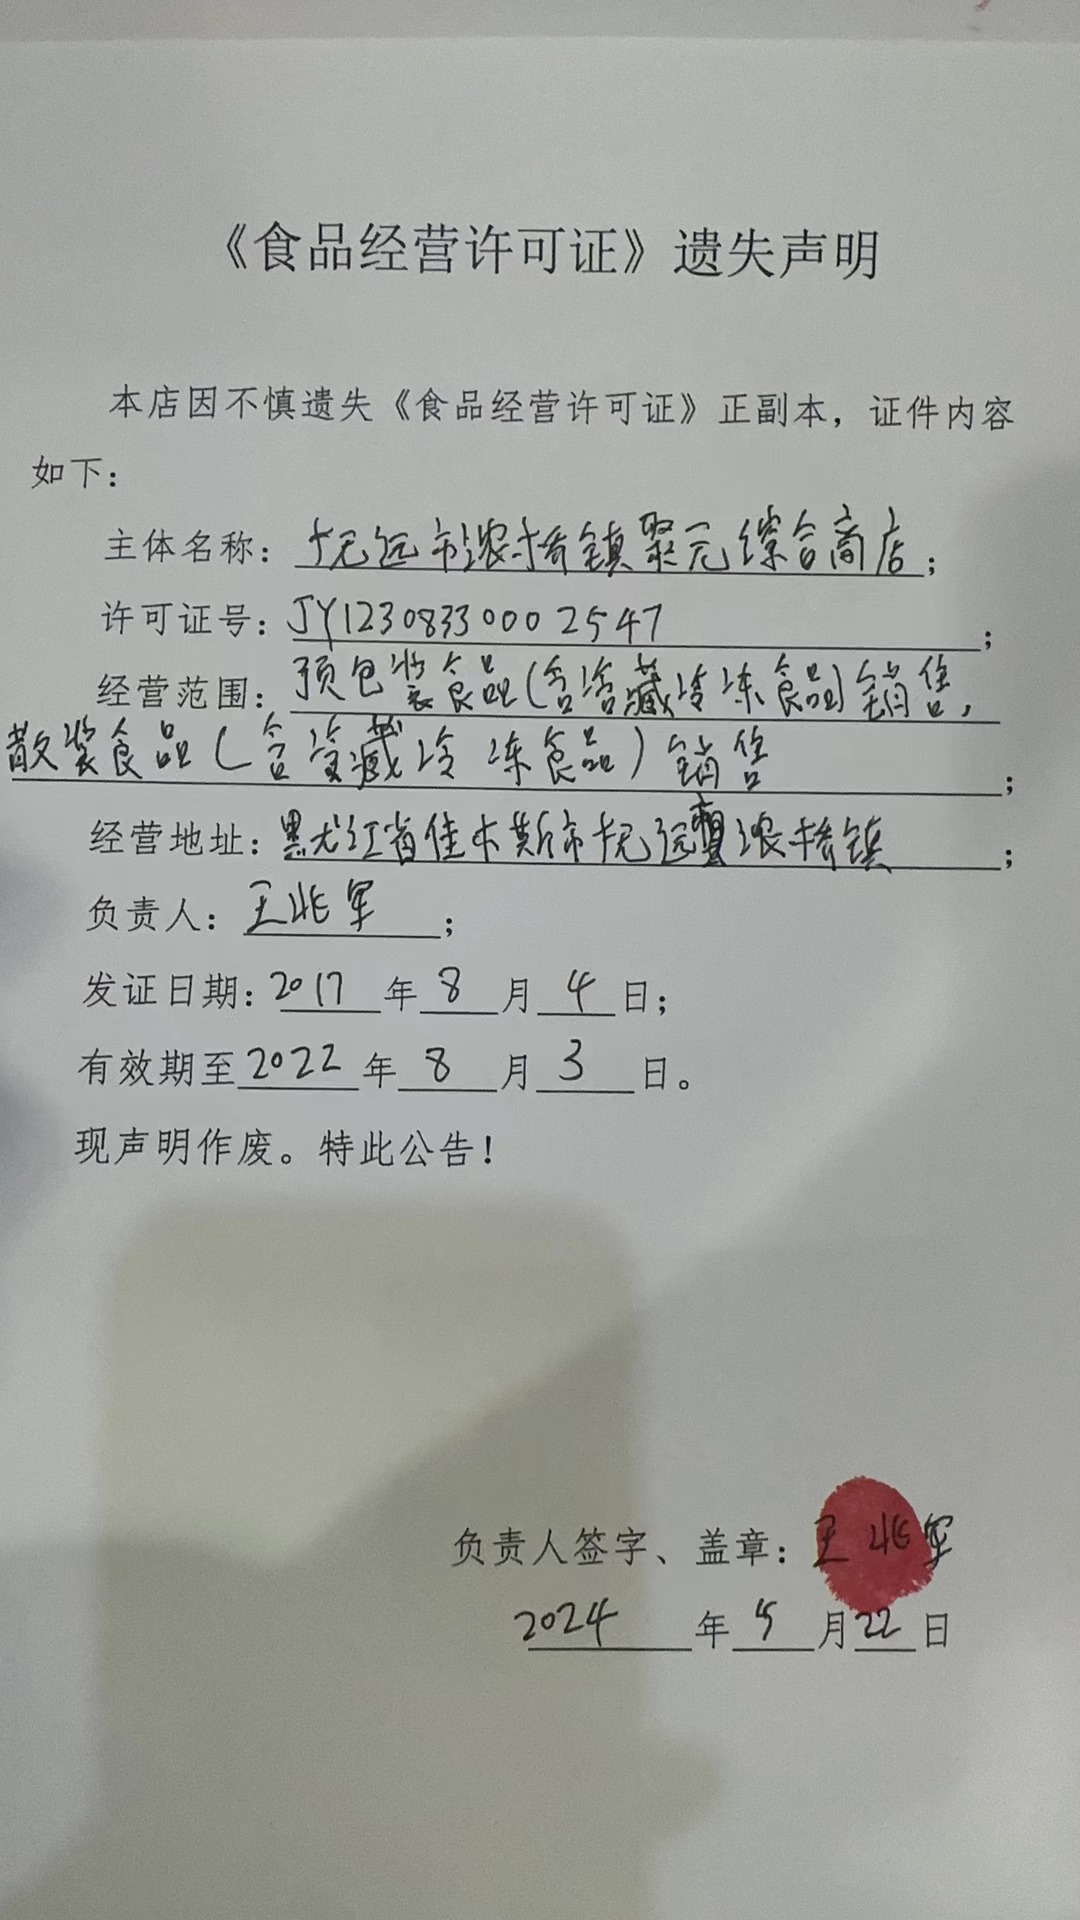 《食品经营许可证》遗失声明
本店因不慎遗失《食品经营许可证》正副本，证件内容
如下：
主体名称：抚远市浓桥镇聚元综合商店；
许可证号：JY12308330002547；
经营范围：预包装食品(含冷藏冷冻食品)销售，
散装食品(含冷藏冷冻食品)销售；
经营地址：黑龙江省佳木斯市抚远市浓桥镇；
负责人：王兆军；
发证日期：2017年8月4日；
有效期至2022年8月3日。
现声明作废。特此公告！
负责人签字、盖章：王兆军
2024年5月22日